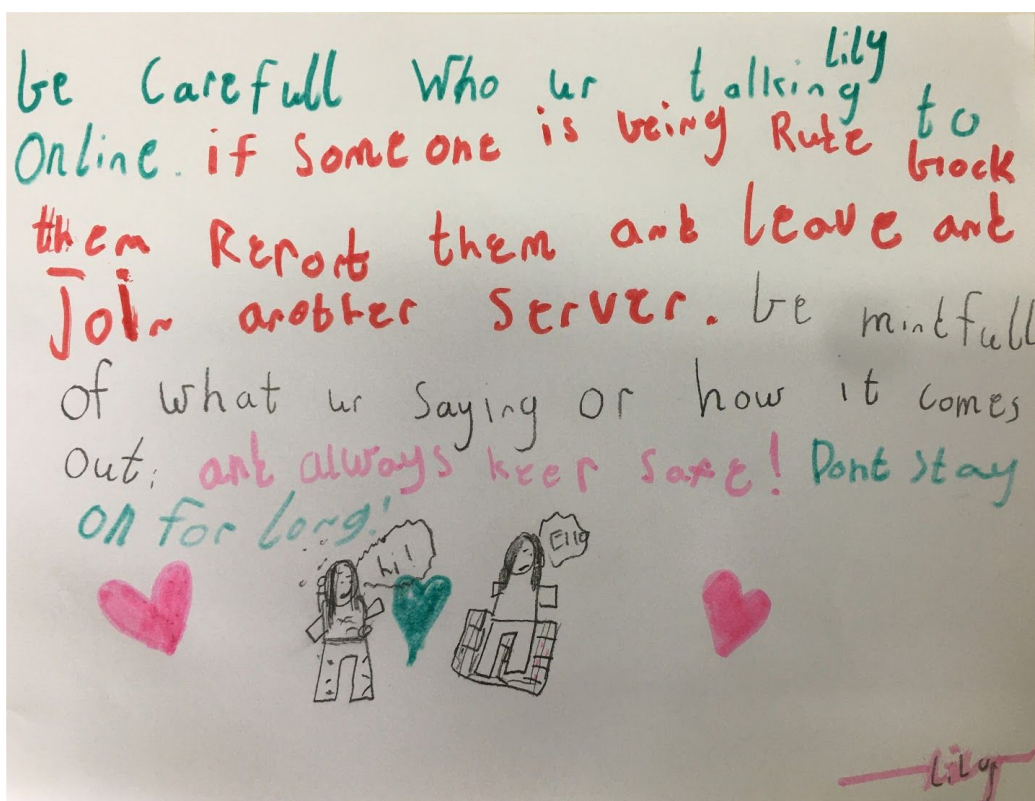 Lily
be Carefull Who ur talking to
Online. if Someone is being Rute block
them Report them ant leave ant
Join another Server. be mintfull
of what ur Saying or how it comes
out; ant always keep safe! Dont stay
on for long!
hi!
Ello
Lily